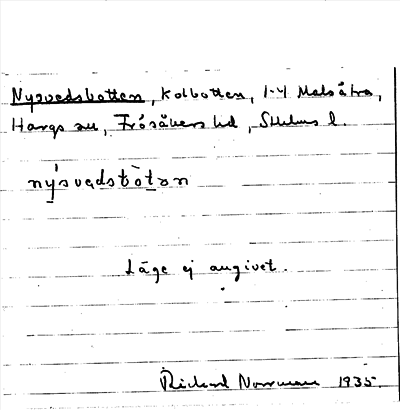 Nysvedsbotten, Kolbotten, 1-4 Malsätra,
Hargs sn, Frösåkers hd, Sthlms l.
nỳsvedsbòtən
Läge ej angivet.
Richard Norrman 1935.